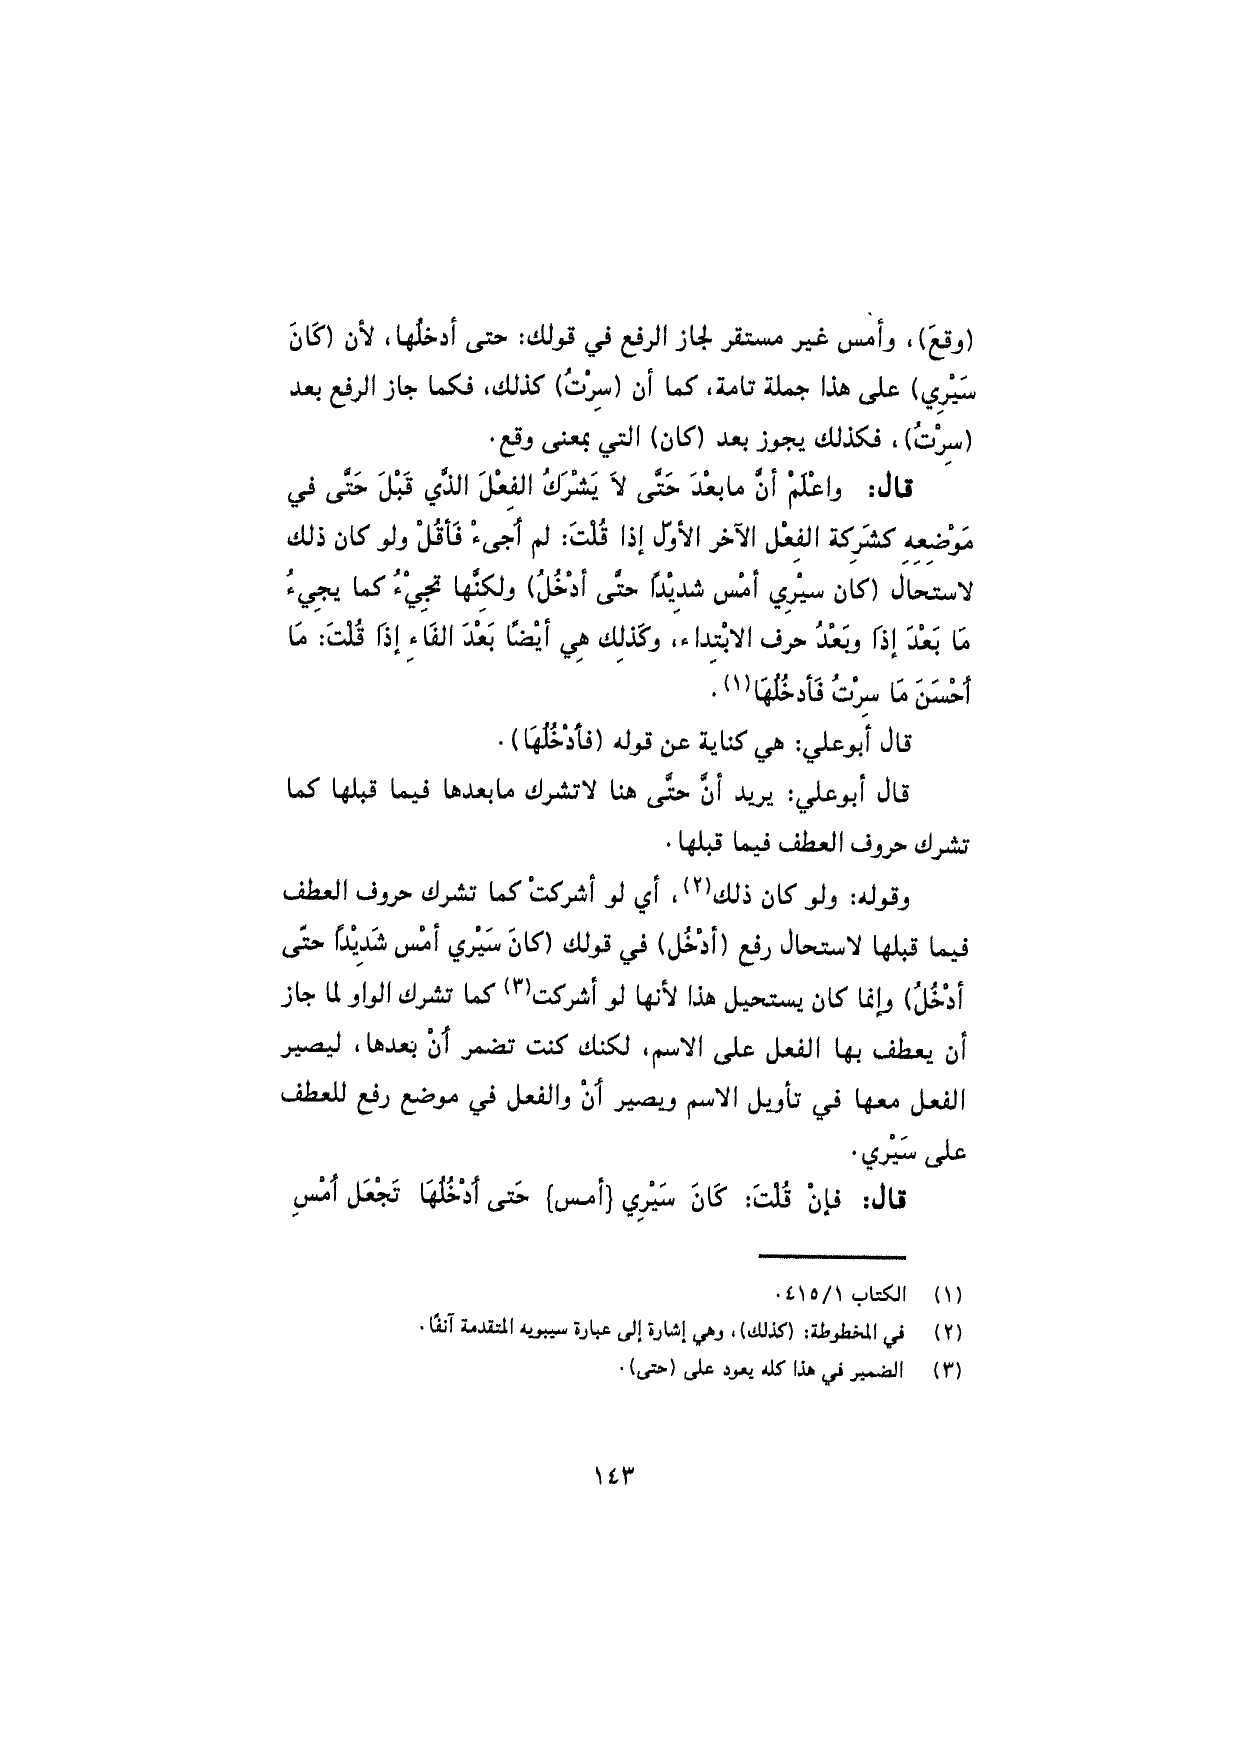 (وقعَ)، وأمس غير مستقر لجاز الرفع في قولك: حتى أدخلُها، لأن (كَانَ
سَيْرِي) على هذا جملة تامة، كما أن (سِرْتُ) كذلك، فكما جاز الرفع بعد
(سِرْتُ)، فكذلك يجوز بعد (كان) التي بمعنى وقع.
قال: واعْلَمْ أنَّ مابعْدَ حَتَّى لاَ يَشْرَكُ الفِعْلَ الذَّي قَبْلَ حَتَّى في
مَوْضِعِهِ كشَرِكة الفِعْل الآخر الأوّل إذا قُلْتَ: لم أجىءْ فَأقُلْ ولو كان ذلك
لاستحال (كان سيْرِي أمْس شديْداً حتَّى أدْخُلُ) ولكنَّها تجيْءُ كما يجيءُ
مَا بَعْدَ إذَا وبَعْدُ حرف الابْتِداء، وكَذلِك هِي أيْضًا بَعْدَ الفَاءِ إذَا قُلْتَ: مَا
أحْسَنَ مَا سِرْتُ فَأدخُلُهَا(١).
قال أبوعلي: هي كناية عن قوله (فأدْخُلُهَا).
قال أبوعلي: يريد أنَّ حتَّى هنا لاتشرك مابعدها فيما قبلها كما
تشرك حروف العطف فيما قبلها.
وقوله: ولو كان ذلك(٢)، أي لو أشركتْ كما تشرك حروف العطف
فيما قبلها لاستحال رفع (أدْخُل) في قولك (كانَ سَيْري أمْس شَدِيْداً حتّى
أدْخُلُ) وإنما كان يستحيل هذا لأنها لو أشركت(٣) كما تشرك الواو لما جاز
أن يعطف بها الفعل على الاسم، لكنك كنت تضمر أنْ بعدها، ليصير
الفعل معها في تأويل الاسم ويصير أنْ والفعل في موضع رفع للعطف
على سَيْري.
قال: فإنْ قُلْتَ: كَانَ سَيْرِي {أمس} حَتى أدْخُلُهَا تَجْعَل أمْسِ
(١) الكتاب ٤١٥/١.
(٢) في المخطوطة: (كذلك)، وهي إشارة إلى عبارة سيبويه المتقدمة آنفًا.
(٣) الضمير في هذا كله يعود على (حتى).
١٤٣